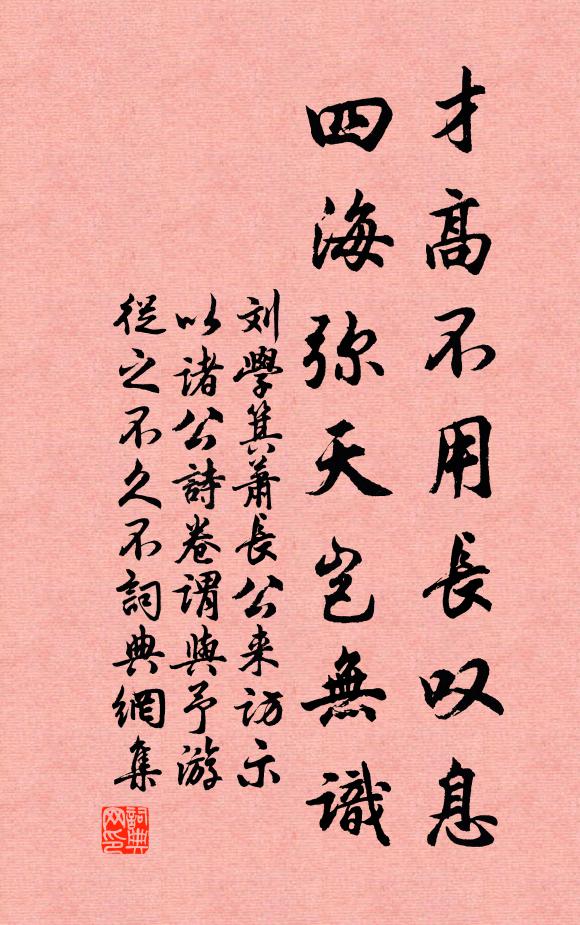 才高不用長叹息
四海弥天岂無識
刘學箕蕭長公来訪示
以诸公詩卷谓與予游
從之不久不詞典網集
詞典网印